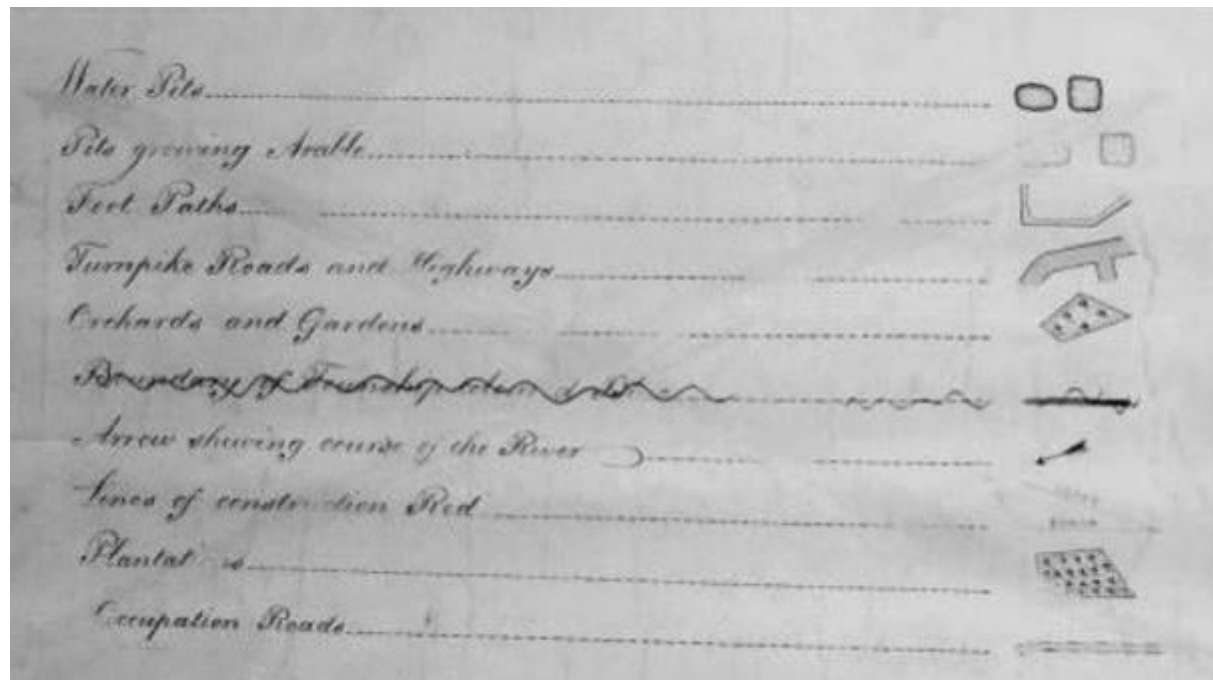 Water Pits
Pits growing Arable
Foot Paths
Turnpike Roads and Highways
Orchards and Gardens
Boundary of Township
Arrow shewing course of the River
Lines of construction Red
Occupation Roads